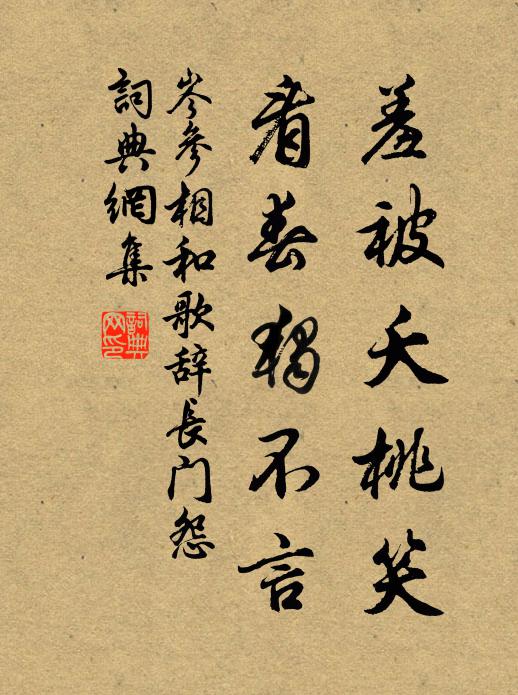 羞被夭桃笑
看春独不言
岑參相和歌辞長门怨
詞典網集
詞典
网印